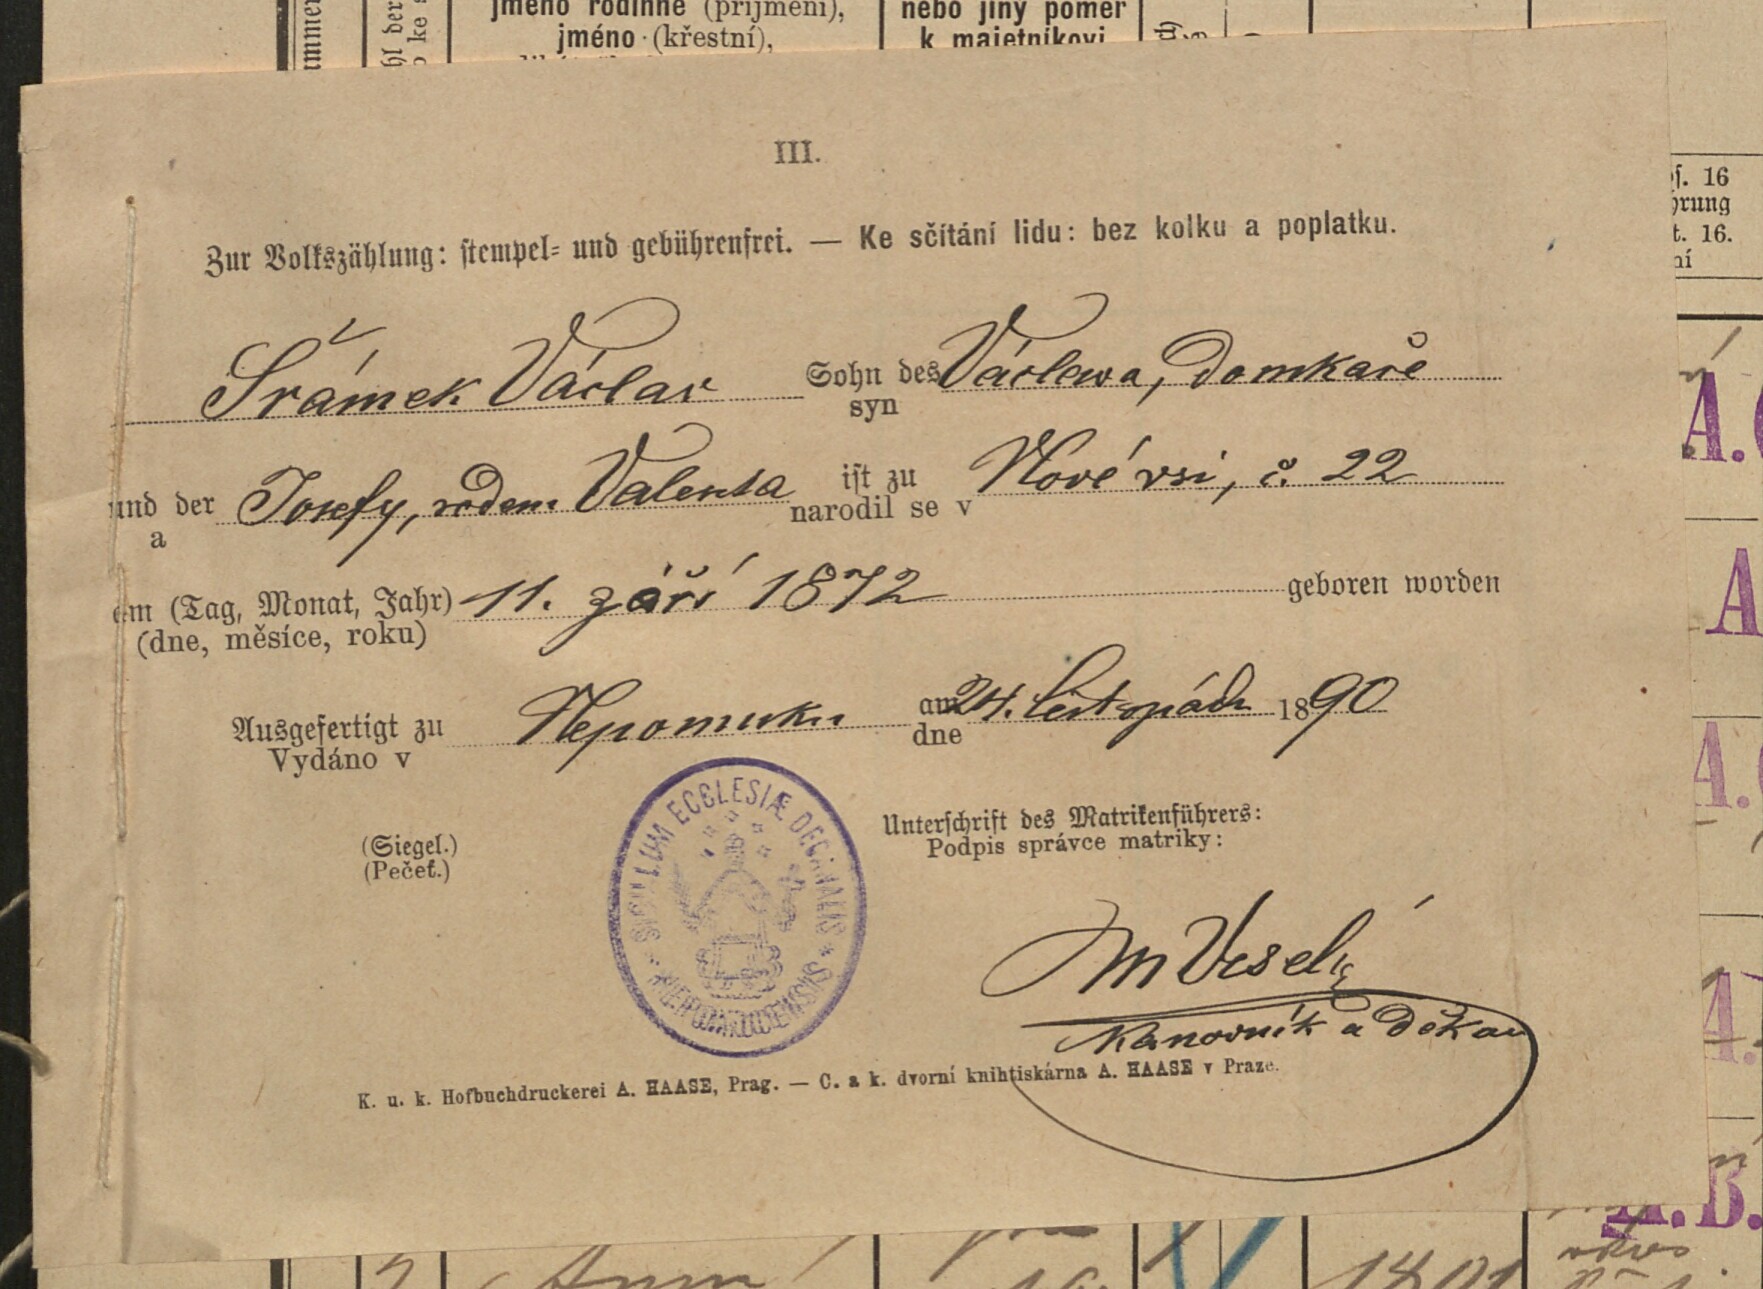 jméno rodinné (příjmení),
jméno (křestní),
nebo jiný poměr
k majetníkovi
III.
Zur Volkszählung: stempel- und gebührenfrei. — Ke sčítání lidu: bez kolku a poplatku.
Šrámek Václav Sohn des Václava, domkaře
syn
und der Josefy, rodem. Valenta ist zu Nové vsi, č. 22
a narodil se v
am (Tag, Monat, Jahr) 11. září 1872 geboren worden
(dne, měsíce, roku)
Ausgefertigt zu Nepomuku am 24. listopadu 1890
Vydáno v dne
(Siegel.)
(Pečeť.)
SIGILLUM ECCLESIÆ DECANALIS
NEPOMUCENSIS
Unterschrift des Matrikenführers:
Podpis správce matriky:
Veselý
kanovník a děkan
K. u. k. Hofbuchdruckerei A. HAASE, Prag. — C. a k. dvorní knihtiskárna A. HAASE v Praze.
16
t. 16.
A.
A
A.
A.
B.